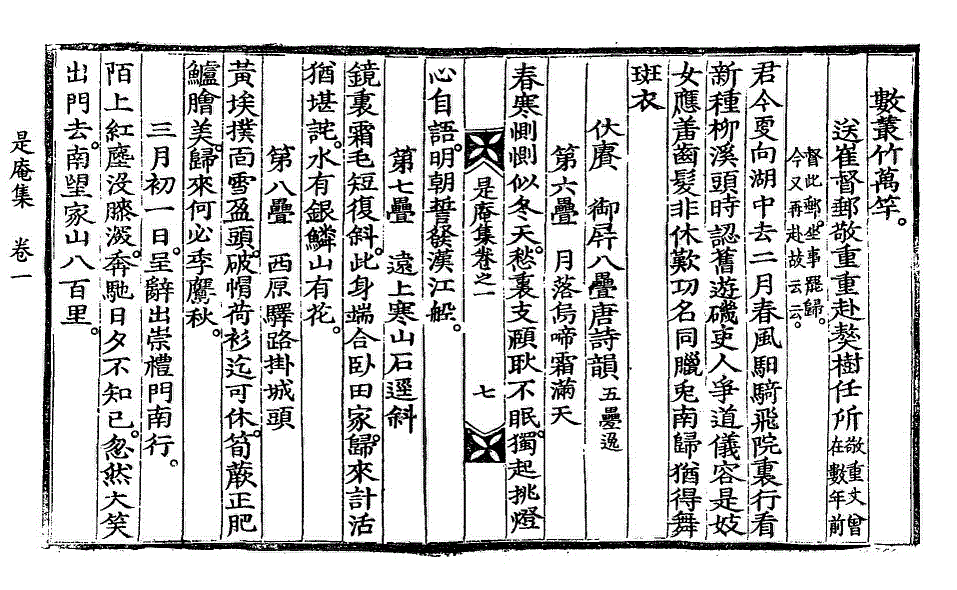 數叢竹萬竿。
送崔督郵敬重重赴獒樹任所敬重丈曾在數年前
督此郵。坐事罷歸。今又再赴故云云。
君今夏向湖中去二月春風馹騎飛院裏行看
新種柳溪頭時認舊遊磯吏人爭道儀容是妓
女應善齒髮非休歎功名同臘兎南歸猶得舞
斑衣
伏賡御屛八疊唐詩韻五疊逸
第六疊 月落烏啼霜滿天
春寒惻惻似冬天。愁裏支頤耿不眠。獨起挑燈
是庵集卷之一 七
心自語。明朝誓發漢江船。
第七疊 遠上寒山石逕斜
鏡裏霜毛短復斜。此身端合臥田家。歸來計活
猶堪詫。水有銀鱗山有花。
第八疊 西原驛路掛城頭
黃埃撲面雪盈頭。破帽荷衫迄可休。筍蕨正肥
鱸膾美。歸來何必季鷹秋。
三月初一日。呈辭出崇禮門南行。
陌上紅塵沒膝深。奔馳日夕不知已。忽然大笑
出門去。南望家山八百里。
是庵集 卷一